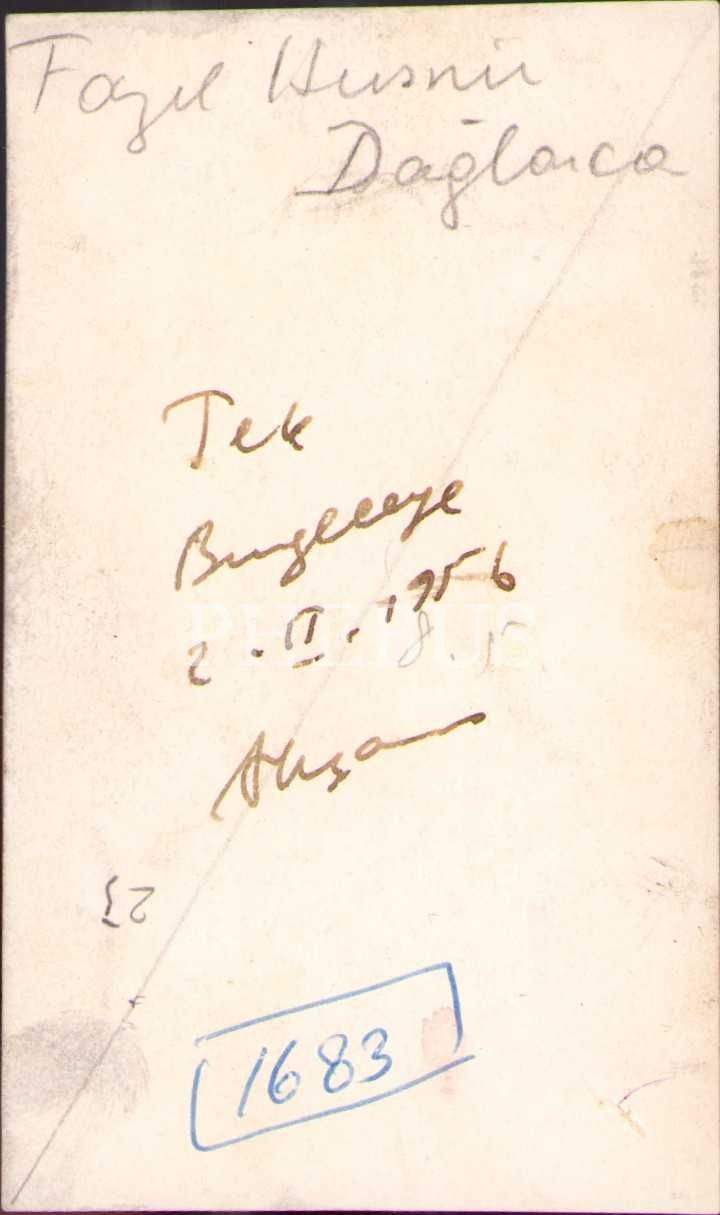 Fazıl Hüsnü
Dağlarca
Tek
2.II.1956
8.5
PHEBUS
23
1683